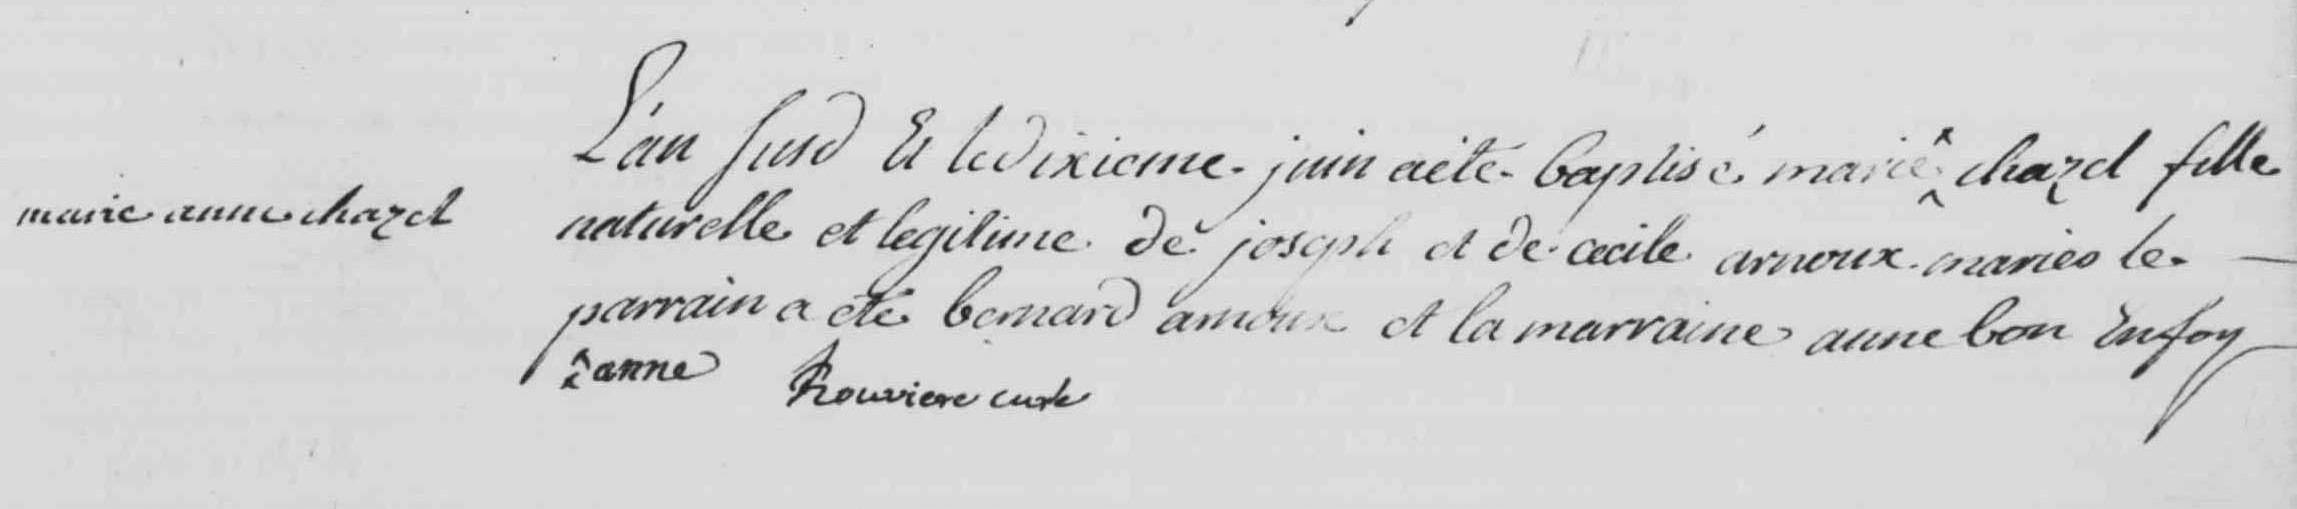 marie anne chazel
L'an susd et le dixieme juin aété baptisé marie ^ chazel fille
naturelle et legitime de joseph et de cecile arnoux maries le
parrain a eté bernard arnoux et la marraine anne bon en foy
^ anne Rouviere curé